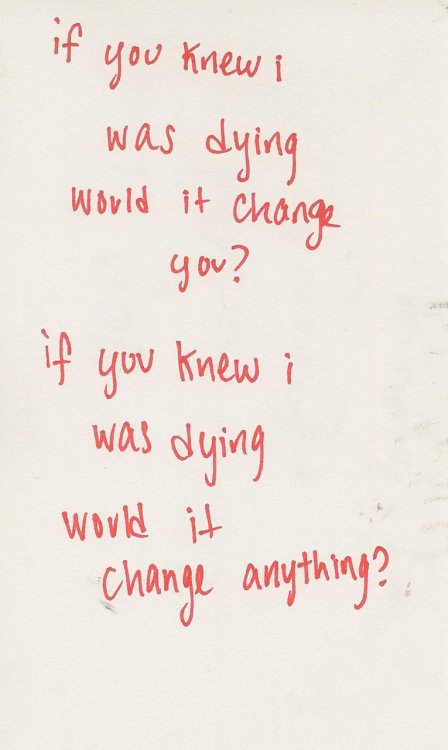 if you knew i
was dying
would it change
you?
if you knew i
was dying
would it
change anything?